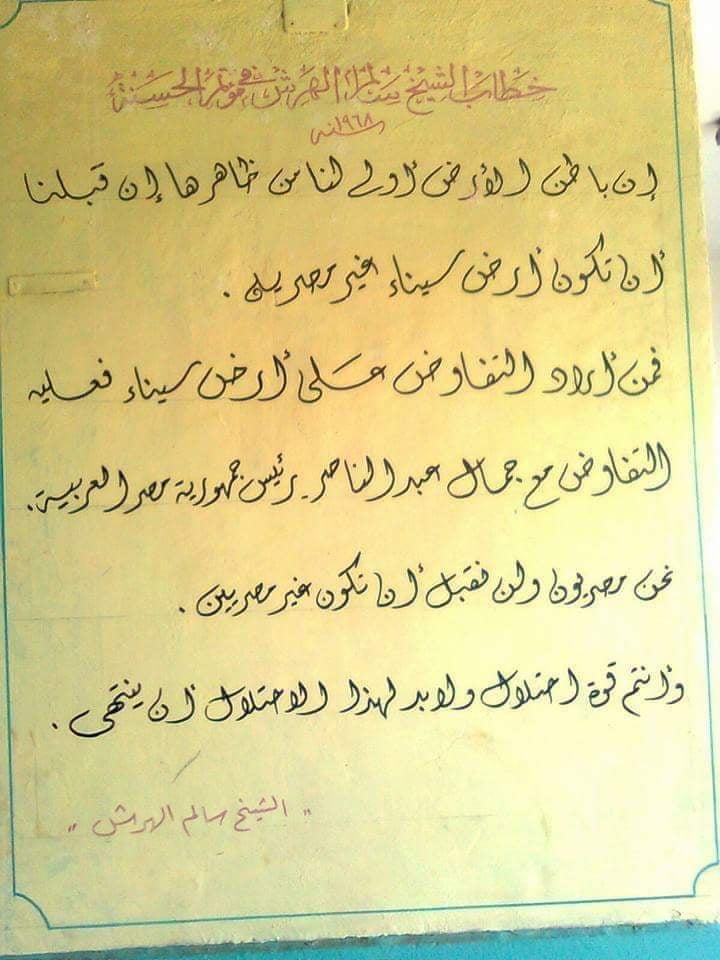 خطاب الشيخ سالم الهرش في مؤتمر الحسنة
سنة ١٩٦٨
إن باطن الأرض أولى لنا من ظاهرها إن قبلنا
أن تكون أرض سيناء غير مصرية .
فمن أراد التفاوض على أرض سيناء فعليه
التفاوض مع جمال عبد الناصر رئيس جمهورية مصر العربية .
نحن مصريون ولن نقبل أن نكون غير مصريين .
وأنتم قوة احتلال ولا بد لهذا الاحتلال أن ينتهى .
" الشيخ سالم الهرش "